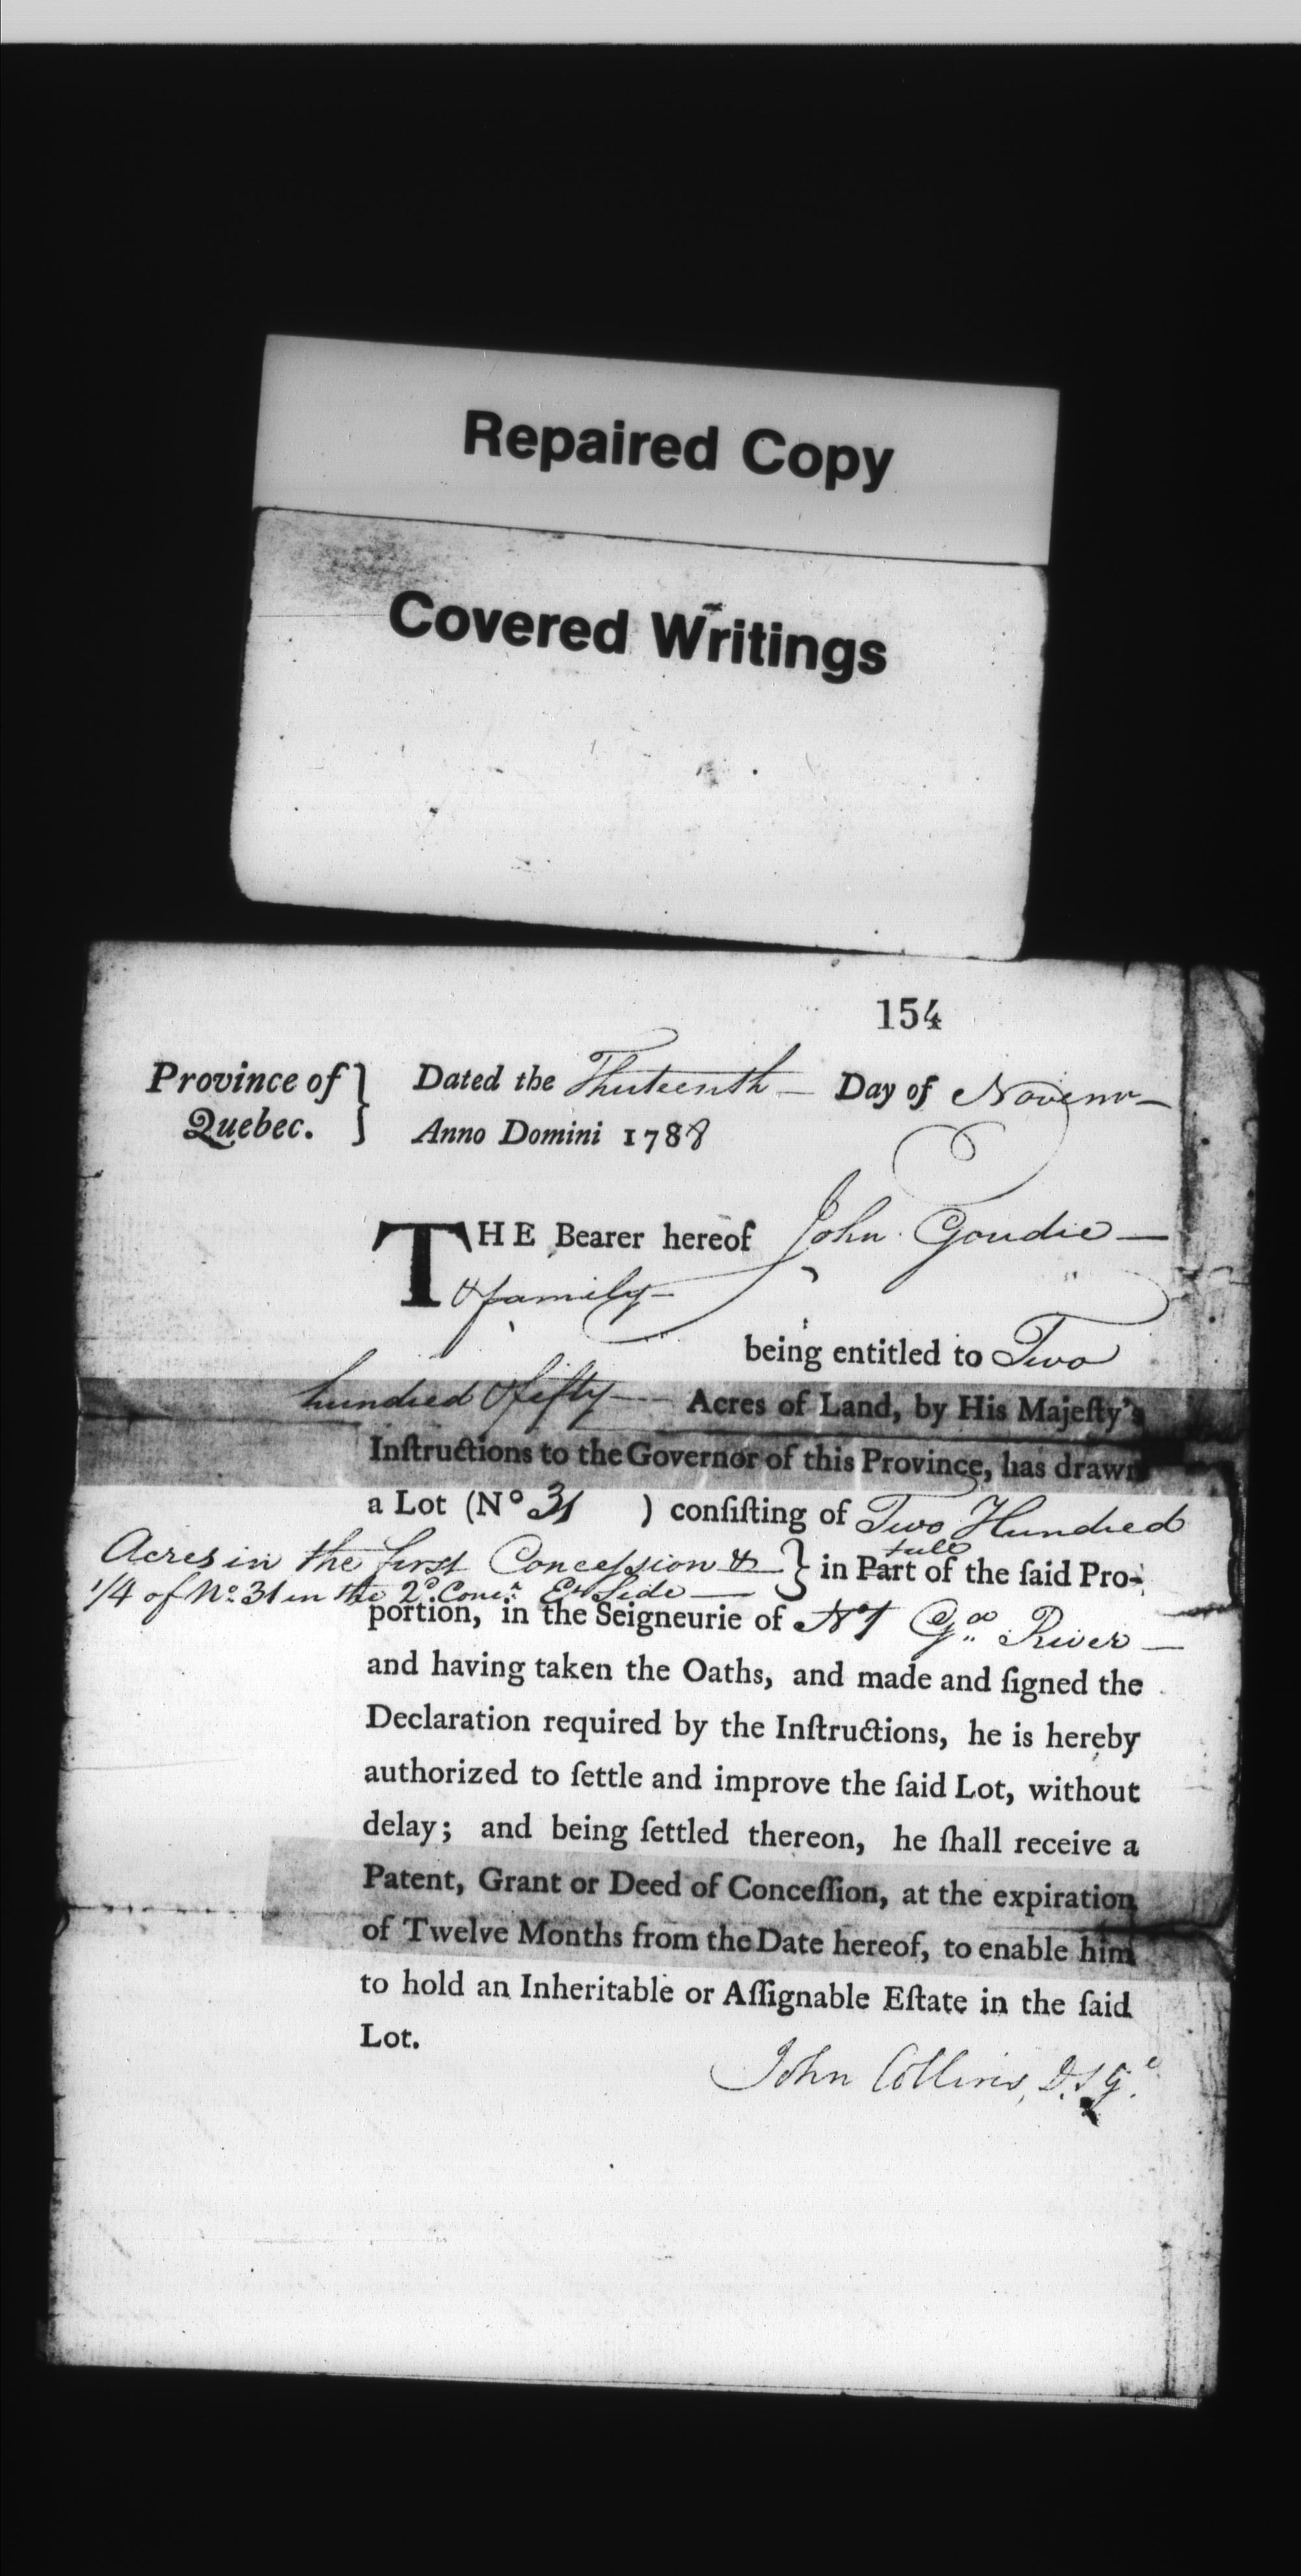 Repaired Copy
Covered Writings
154
Province of } Dated the Thirteenth — Day of Novemr —
Quebec. } Anno Domini 1788
THE Bearer hereof John Goudie —
& family —
being entitled to Two
hundred & fifty — Acres of Land, by His Majeſty's
Inſtructions to the Governor of this Province, has drawn
a Lot (No 31 ) conſiſting of Two Hundred
full
Acres in the first Concession & — } in Part of the ſaid Pro-
1/4 of No. 31 in the 2d. Conn. Et Side —
portion, in the Seigneurie of No 1 Ga. River —
and having taken the Oaths, and made and ſigned the
Declaration required by the Inſtructions, he is hereby
authorized to ſettle and improve the ſaid Lot, without
delay; and being ſettled thereon, he ſhall receive a
Patent, Grant or Deed of Conceſſion, at the expiration
of Twelve Months from the Date hereof, to enable him
to hold an Inheritable or Aſſignable Eſtate in the ſaid
Lot.
John Collins, D.S.G.